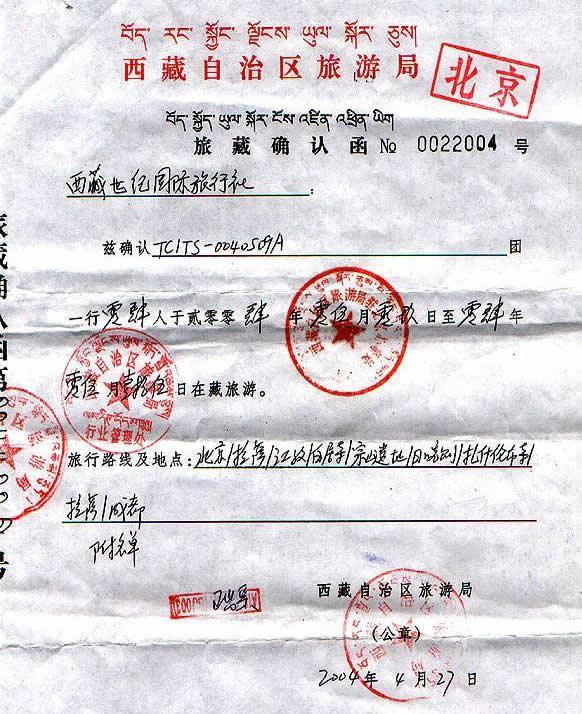 བོད་རང་སྐྱོང་ལྗོངས་ཡུལ་སྐོར་ཅུས།
西藏自治区旅游局
北京
བོད་སྐྱོད་ཡུལ་སྐོར་ངོས་འཛིན་འཕྲིན་ཡིག
旅藏确认函 № 0022004 号
西藏世纪国际旅行社：
兹确认 TCITS-0040509A 团
一行零肆人于贰零零肆年零伍月零玖日至零肆年
零伍月壹拾伍日在藏旅游。
行业管理处
旅行路线及地点：北京/拉萨/江孜/白居寺/宗山遗址/日喀则/扎什伦布寺/
拉萨/成都
附名单
西藏自治区旅游局
(公章)
2004年4月27日